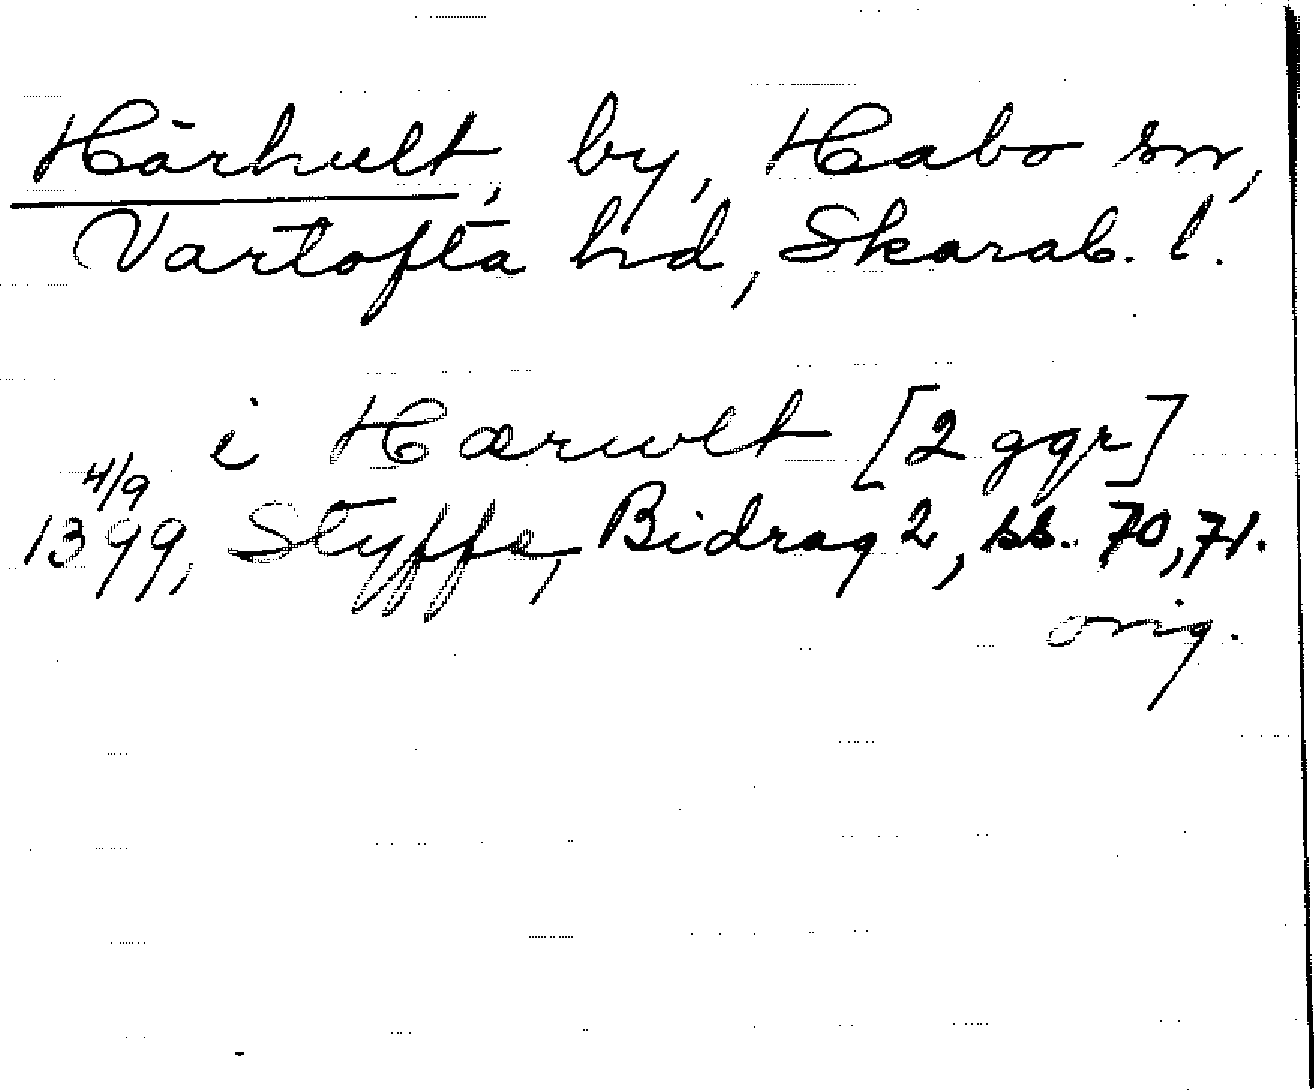 Hårhult, by, Habo sn,
Vartofta hd, Skarab. l.
i Hærwlt [2 ggr]
4/9
1399, Styffe, Bidrag 2, ss. 70, 71.
orig.